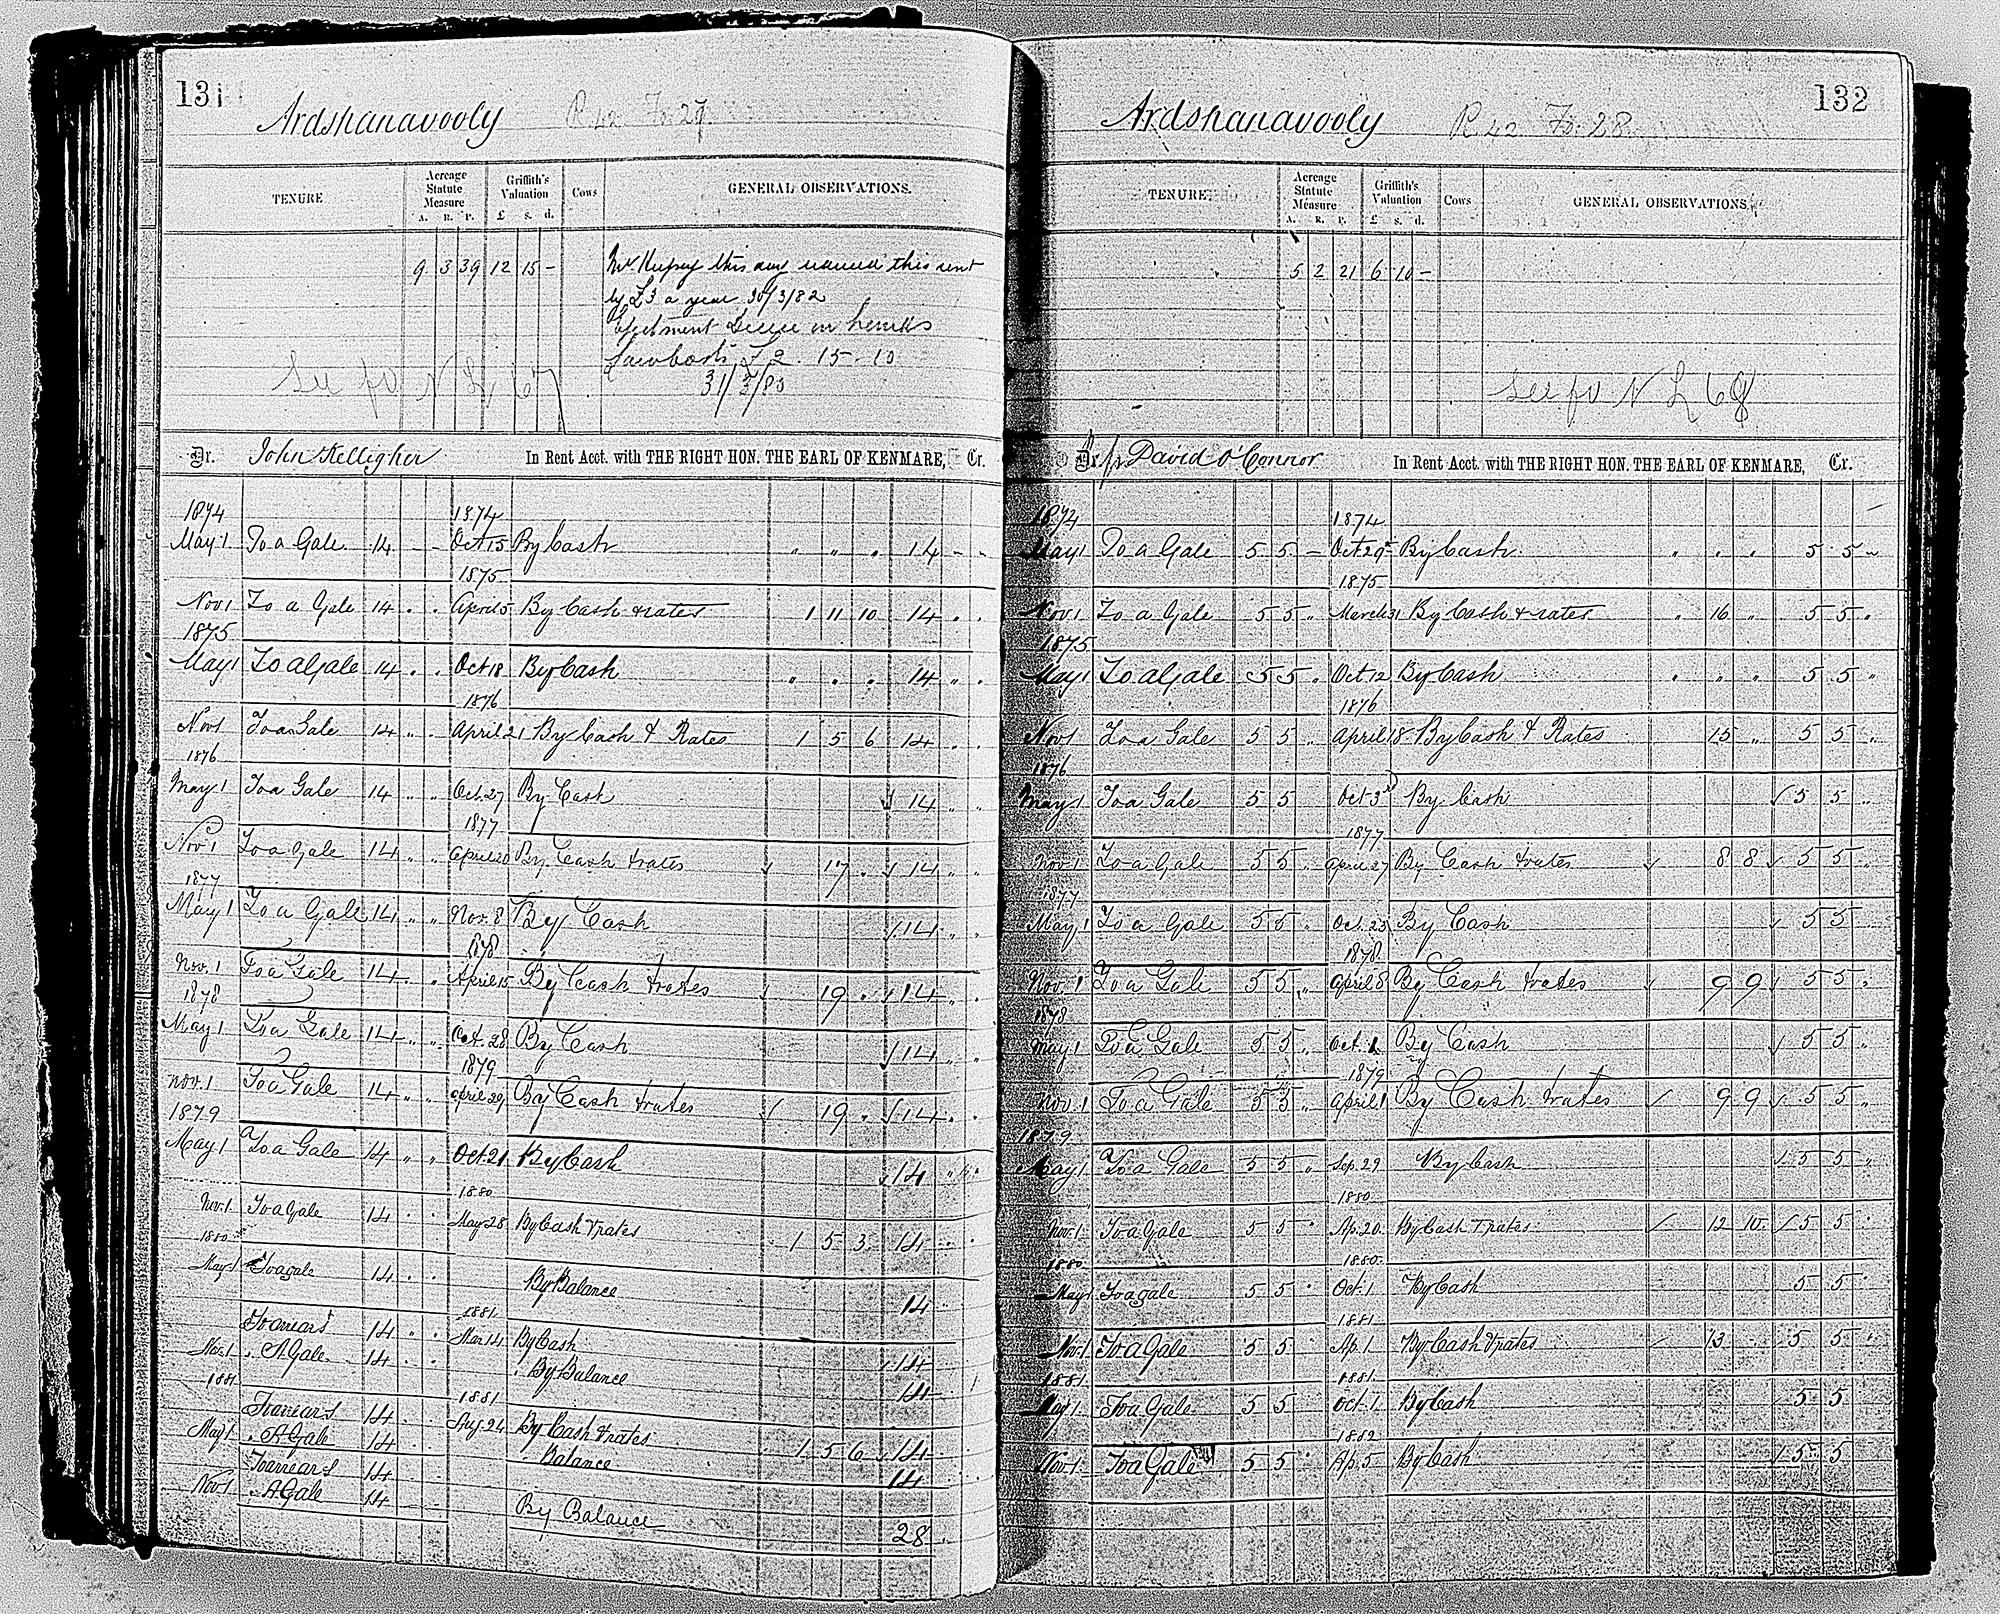 131
Ardshanavooly R 42 Fo. 27
TENURE
Acreage Statute Measure
A. R. P.
Griffith's Valuation
£ s. d.
Cows
GENERAL OBSERVATIONS.
9 3 39 12 15 -
this day this rent
by £3 a year 30/3/82
Ejectment
£2. 15. 10
See fo N L 67
Dr. John Kelligher In Rent Acct. with THE RIGHT HON. THE EARL OF KENMARE, Cr.
1874 1874
May 1 To a Gale 14 - - Oct 15 By Cash " " " 14 - -
1875
Nov 1 To a Gale 14 . . April 5 By Cash & rates 1 11 10 14 . .
1875
May 1 To a Gale 14 . . Oct 18 By Cash " . . 14 " .
1876
Nov 1 To a Gale 14 " . April 21 By Cash & Rates 1 5 6 14 . .
1876
May 1 To a Gale 14 " " Oct. 27 By Cash √ 14 " "
1877
Nov 1 To a Gale 14 " " April 20 By Cash & rates √ 17 . √ 14 " "
1877
May 1 To a Gale 14 " " Nov. 8 By Cash √ 14 " "
1878
Nov. 1 To a Gale 14 " " April 15 By Cash & rates √ 19 . √ 14 " .
1878
May 1 To a Gale 14 " " Oct. 28 By Cash √ 14 " "
1879
Nov. 1 To a Gale 14 " " April 29 By Cash & rates √ 19 " √ 14 " .
1879
May 1 To a Gale 14 " " Oct. 21 By Cash √ 14 " "
1880
Nov. 1 To a Gale 14 . . May 28 By Cash & rates 1 5 3 14 . .
1880
May 1 To a gale 14 . . By Balance 14 .
1881
To arrears 14 " . Mar 14 By Cash 14
Nov. 1 " A Gale 14 . . " By Balance 14
1881 1881
To arrears 14 . Aug. 24 By Cash & rates 1 5 6 √ 14 .
May 1 " A Gale 14 . " Balance 14
To arrears 14
Nov 1 " A Gale 14 - - By Balance 28
132
Ardshanavooly R 42 Fo. 28
TENURE.
Acreage Statute Measure
A. R. P.
Griffith's Valuation
£ s. d.
Cows
GENERAL OBSERVATIONS.
5 2 21 6 10 -
See fo N L 68
Dr. David O'Connor In Rent Acct. with THE RIGHT HON. THE EARL OF KENMARE, Cr.
1874 1874
May 1 To a Gale 5 5 - Oct 29 By Cash. " " " 5 5 -
1875
Nov. 1 To a Gale 5 5 " March 31 By Cash & rates " 16 " 5 5 "
1875
May 1 To a Gale 5 5 " Oct 12 By Cash " " " 5 5 "
1876
Nov 1 To a Gale 5 5 " April 18 By Cash & Rates 15 " 5 5 "
1876
May 1 To a Gale 5 5 Oct 3rd By Cash √ 5 5 "
1877
Nov. 1 To a Gale 5 5 " April 27 By Cash & rates √ 8 8 √ 5 5 "
1877
May 1 To a Gale 5 5 " Oct. 23 By Cash √ 5 5 "
1878
Nov. 1 To a Gale 5 5 " April 8 By Cash & rates √ 9 9 √ 5 5 "
1878
May 1 To a Gale 5 5 " Oct. 1 By Cash √ 5 5 "
1879
Nov. 1 To a Gale 5 5 " April 1 By Cash & rates √ 9 9 √ 5 5 "
1879
May 1 To a Gale 5 5 " Sep. 29 By Cash √ 5 5 "
1880
Nov. 1 To a Gale 5 5 " Ap. 20 By Cash & rates √ 12 10 √ 5 5 "
1880 1880
May 1 To a gale 5 5 " Oct. 1 By Cash 5 5 "
1881
Nov. 1 To a Gale 5 5 " Ap. 1 By Cash & rates √ 13 . 5 5 "
1881 1881
May 1 To a Gale 5 5 Oct. 1 By Cash 5 5
1882
Nov. 1 To a Gale 5 5 " Ap. 5 By Cash √ 5 5